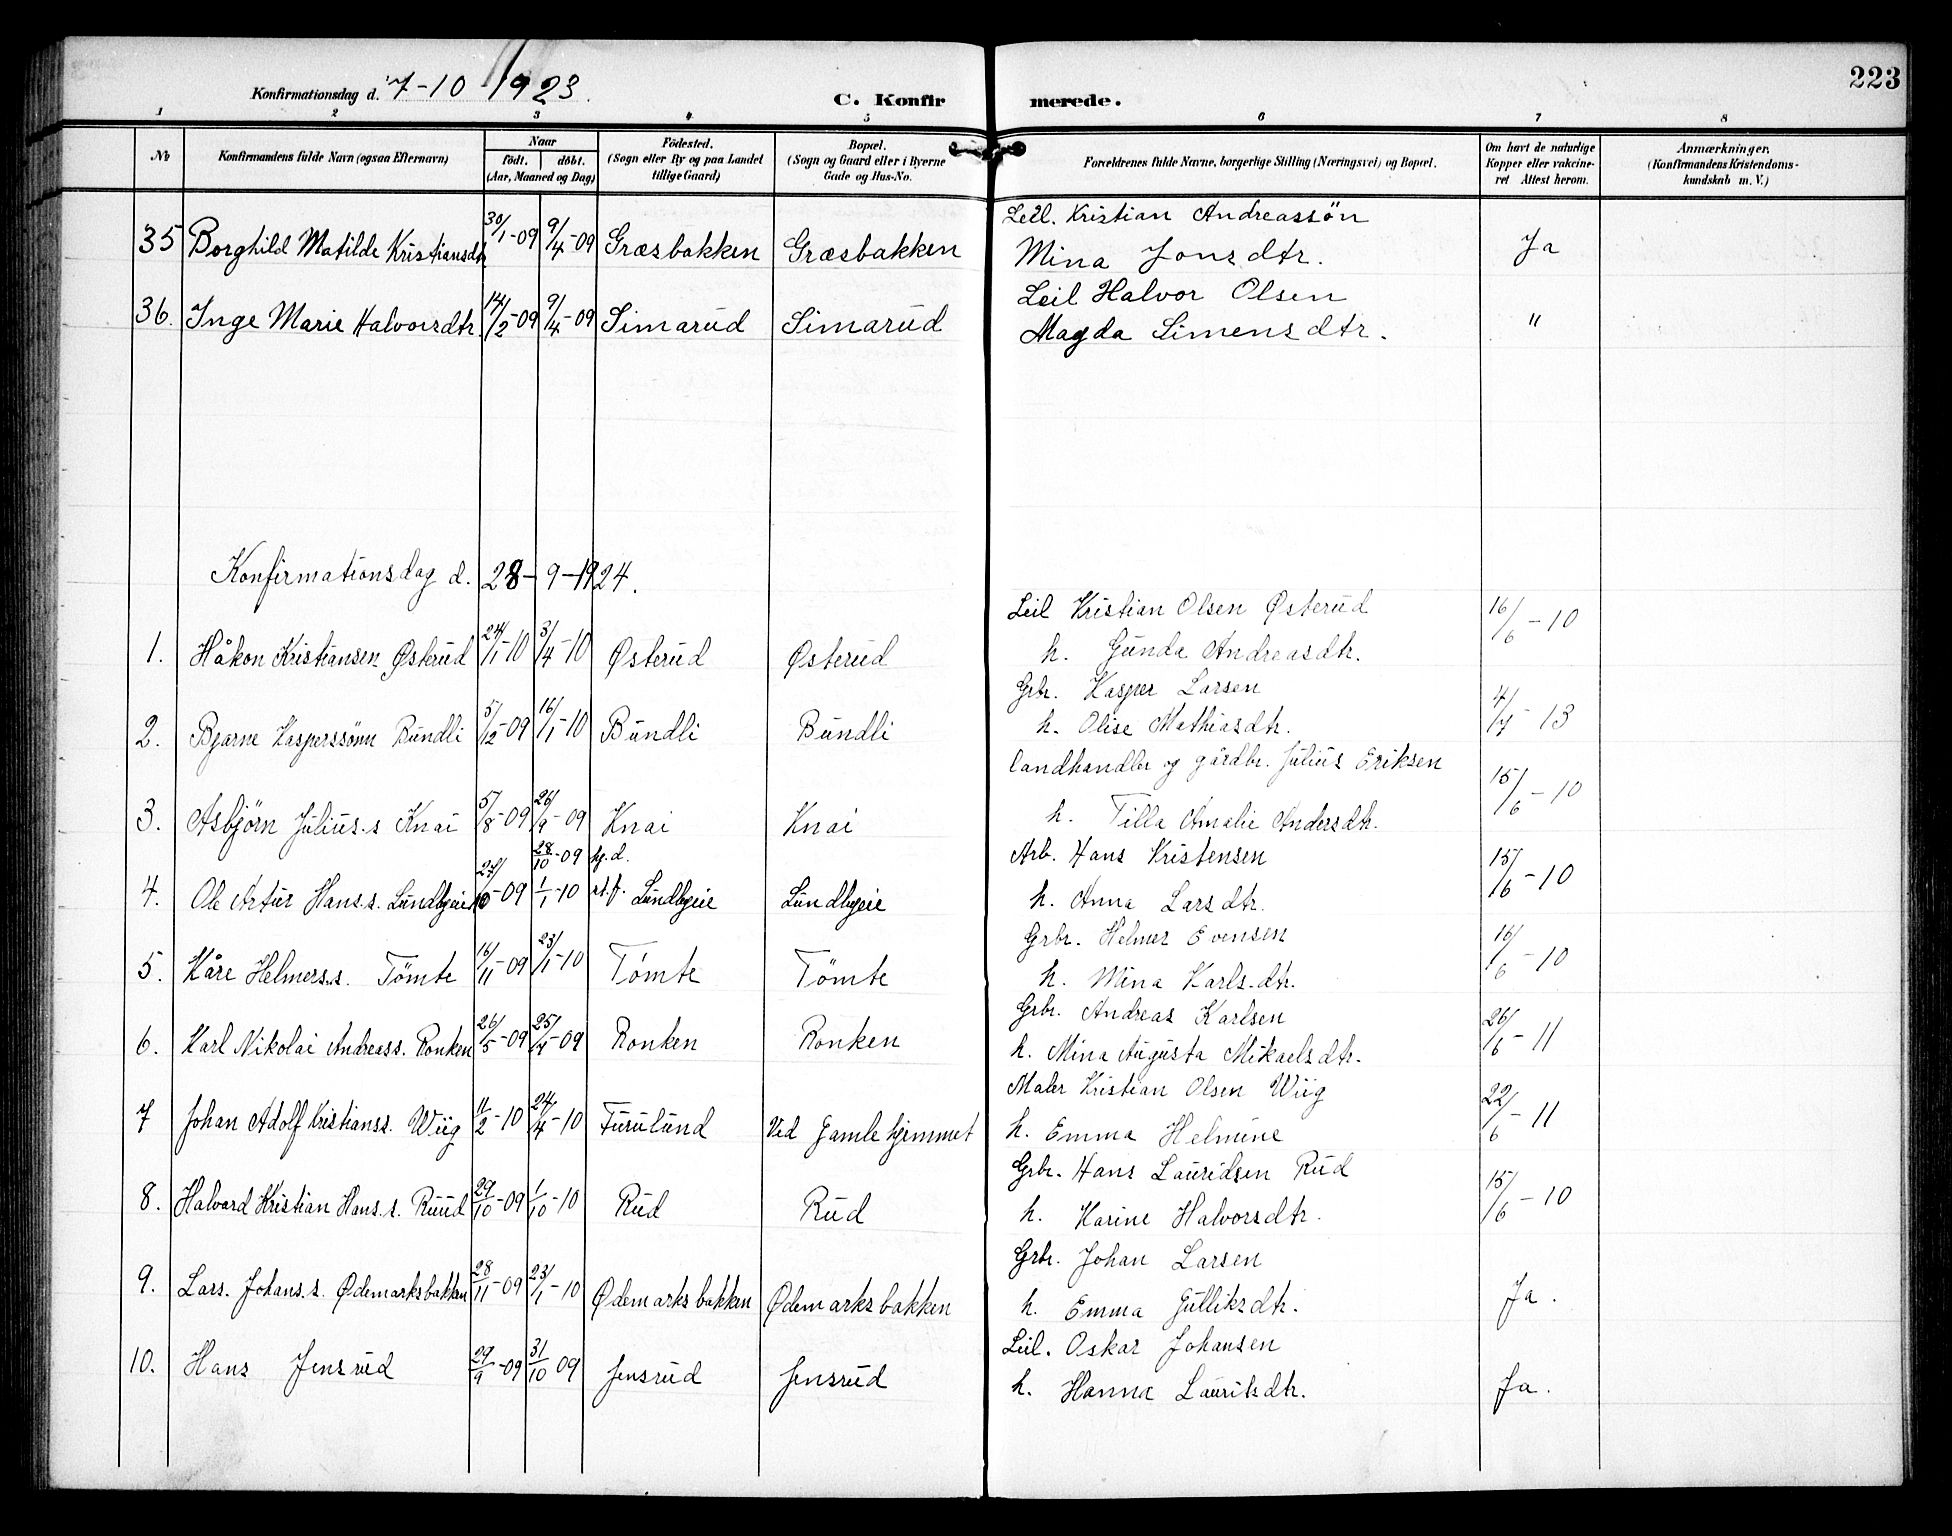 223
Konfirmationsdag d. 7-10 1923.
C. Konfirmerede.
1 2 3 4 5 6 7 8
No
Konfirmandens fulde Navn (ogsaa Efternavn)
Naar
født. døbt.
(Aar, Maaned og Dag)
Födested.
(Sogn eller By og paa Landet
tillige Gaard)
Bopæl.
(Sogn og Gaard eller i Byerne
Gade og Hus-No.
Forældrenes fulde Navne, borgerlige Stilling (Næringsvei) og Bopæl.
Om havt de naturlige
Kopper eller vakcine-
ret Attest herom.
Anmærkninger.
(Konfirmandens Kristendoms-
kundskab m. V.)
Leil. Kristian Andreassön
35 Borghild Matilde Kristiansdtr 30/1-09 9/4-09 Græsbakken Græsbakken Mina Jonsdtr. Ja
Leil Halvor Olsen
36. Inge Marie Halvorsdtr. 14/2-09 9/4-09 Simarud Simarud Magda Simensdtr. "
Konfirmationsdag d. 28-9-1924.
Leil Kristian Olsen Østerud 16/6-10
1. Håkon Kristiansen Østerud 24/1-10 3/4-10 Østerud Østerud h. Gunda Andreasdtr.
Grbr. Kasper Larsen 4/7-13
2. Bjarne Kasperssønn Bundli 5/12-09 16/1-10 Bundli Bundli h. Olise Mathiasdtr.
landhandler og gårdbr. Julius Eriksen 15/6-10
3. Asbjörn Julius.s Knai 5/8-09 26/9-09 Knai Knai h. Tilla Amalie Andersdtr.
28/10-09 hj.d. Arb. Hans Kristensen 15/6-10
4. Ole Artur Hans.s. Lundbyeie 27/10-09 1/1-10 st.f. Lundbyeie Lundbyeie h. Anna Larsdtr.
Grbr. Helmer Evensen 16/6-10
5. Kåre Helmers.s. Tömte 16/11-09 23/1-10 Tömte Tömte h. Mina Karls.dtr.
Grbr. Andreas Karlsen 26/6-11
6. Karl Nikolai Andreass. Ronken 26/5-09 25/4-09 Ronken Ronken h. Mina Augusta Mikaelsdtr.
Maler Kristian Olsen Wiig 22/6-11
7 Johan Adolf Kristianss. Wiig 11/2-10 24/4-10 Furulund Ved Gamlehjemmet h. Emma Helmine
Grbr. Hans Lauridsen Rud 15/6-10
8. Halvard Kristian Hans.s. Ruud 29/10-09 1/10-10 Rud Rud h. Karine Halvorsdtr.
Grbr. Johan Larsen
9. Lars. Johans.s. Ødemarksbakken 28/11-09 23/1-10 Ødemarksbakken Ødemarksbakken h. Emma Gulliksdtr. Ja.
Leil. Oskar Johansen
10. Hans Jensrud 29/9-09 31/10 09 Jensrud Jensrud h. Hanna Lauritsdtr. Ja.